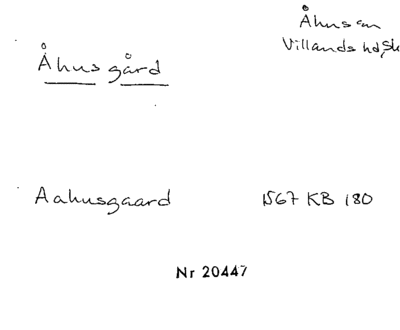 Åhus sn
Villands hd, Sk
Åhus gård
Aahusgaard 1567 KB 180
Nr 20447